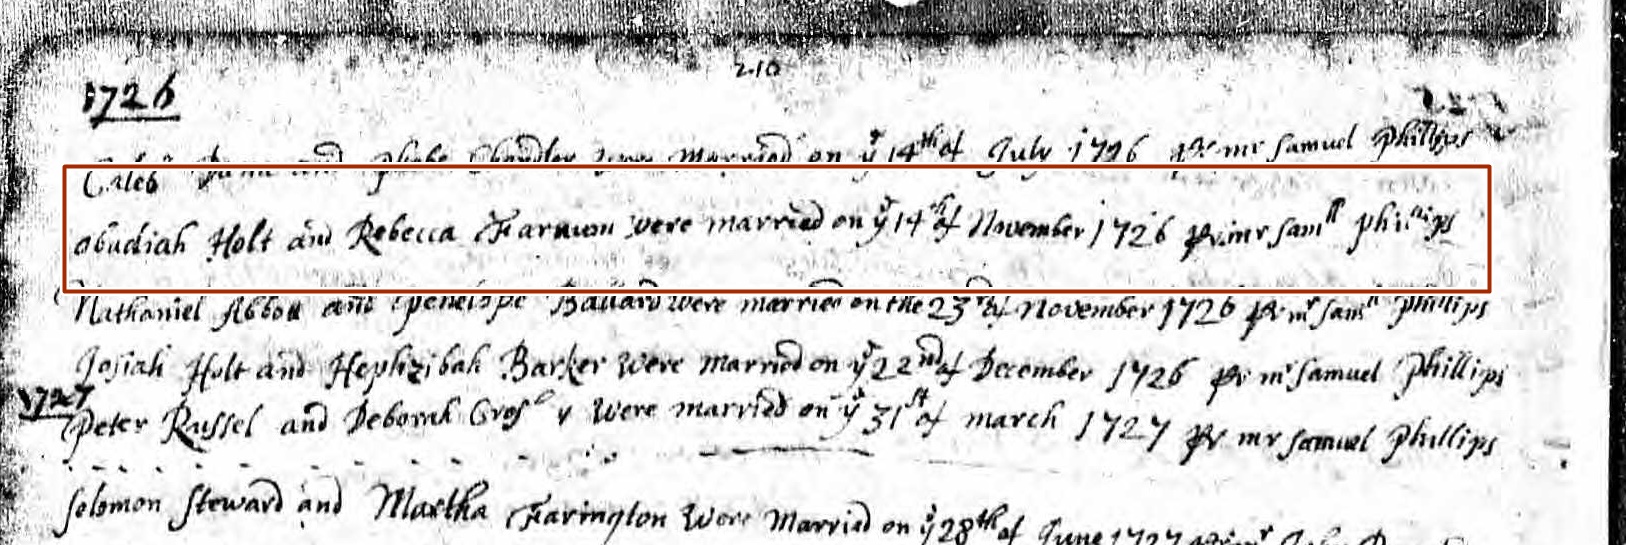 210
1726
Caleb and Phebe Chandler were Married on yͤ 14th of July 1726 Pr mr Samuel Phillips
obadiah Holt and Rebecca Farnum were married on yͤ 14th of November 1726 Pr mr Samll Phillips
Nathaniel Abbott and Penelope Ballard were married on the 23d of November 1726 Pr mr Samll Phillips
Josiah Holt and Hephzibah Barker were married on yͤ 22nd of December 1726 Pr mr Samuel Phillips
1727
Peter Russel and Deborah were married on yͤ 31st of march 1727 Pr mr Samuel Phillips
Solomon Steward and Martha Farington were Married on yͤ 28th of June 1727 Pr mr